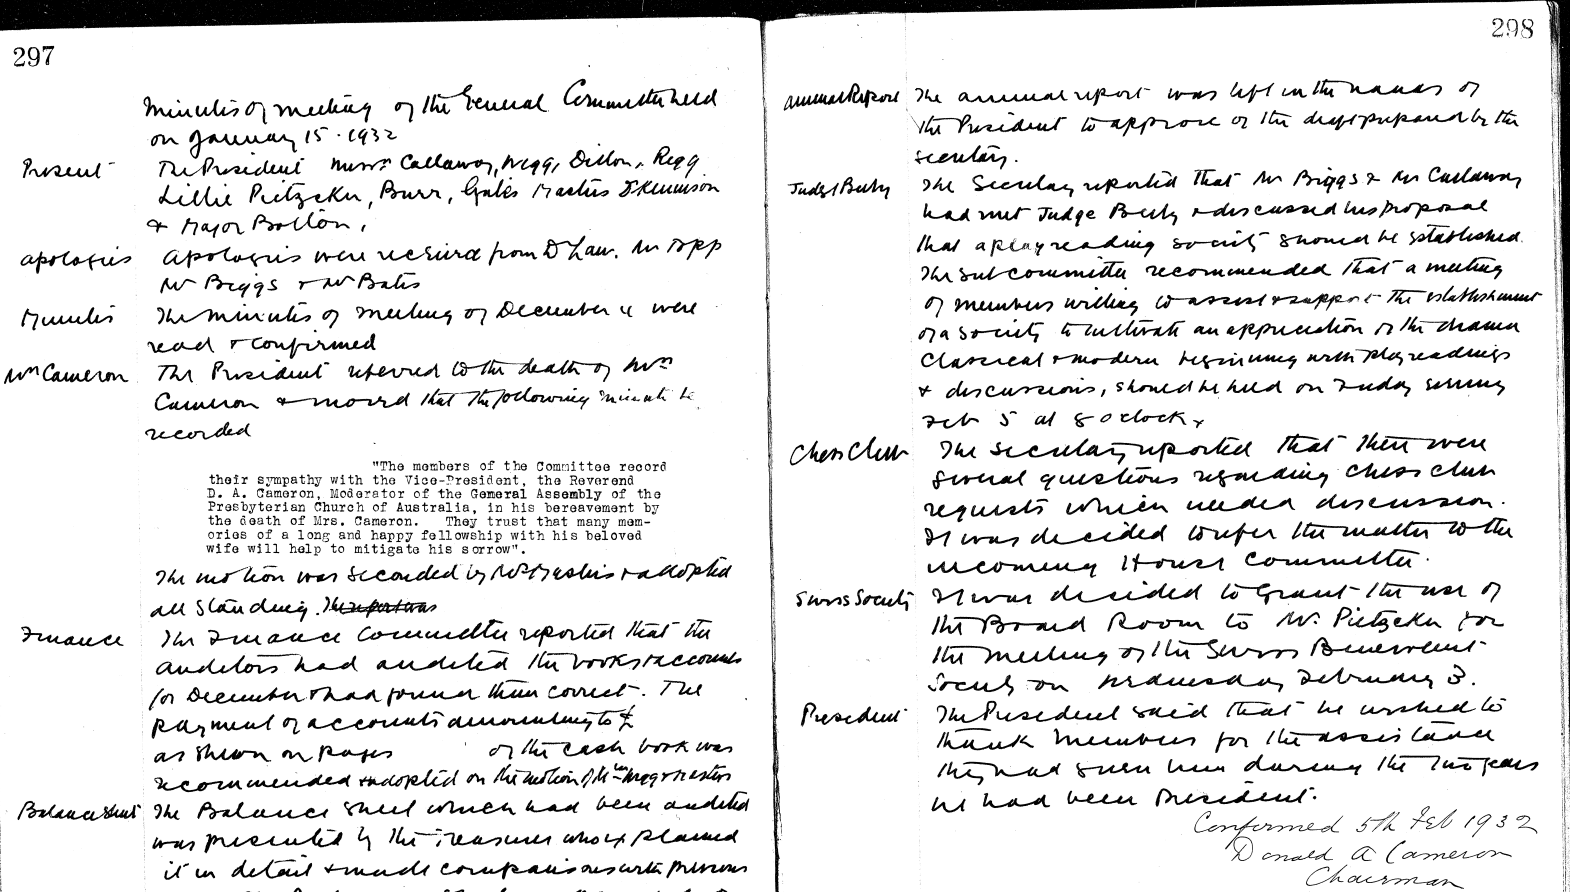 297
Minutes of meeting of the General Committee held
on January 15 . 1932
Present
The President Messrs Callaway, Wegg, Dillon, Regg
Lillie Pietzcker, Burr, Gates Masters Dr Kennison
& Major Bolton,
Apologies
Apologies were received from Dr Law. Mr Topp
Mr Briggs & Mr Bates
Minutes
The minutes of meeting of December 4 were
read & confirmed
Mrs Cameron
The President referred to the death of Mrs
Cameron & moved that the following minute be
recorded
"The members of the Committee record
their sympathy with the Vice-President, the Reverend
D. A. Cameron, Moderator of the General Assembly of the
Presbyterian Church of Australia, in his bereavement by
the death of Mrs. Cameron. They trust that many mem-
ories of a long and happy fellowship with his beloved
wife will help to mitigate his sorrow".
The motion was seconded by Mr Masters & adopted
all standing. The report was
Finance
The Finance Committee reported that the
auditors had audited the books & accounts
for December & had found them correct. The
payment of accounts amounting to £
as shown on pages of the cash book was
recommended & adopted on the motion of Messrs Wegg & Masters
Balance Sheet
The Balance Sheet which had been audited
was presented by the Treasurer who explained
it in detail & made comparisons with previous
298
Annual Report
The annual report was left in the hands of
the President to approve of the draft prepared by the
secretary.
Judge Beeby
The Secretary reported that Mr Briggs & Mr Callaway
had met Judge Beeby & discussed his proposal
that a play reading society should be established.
The subcommittee recommended that a meeting
of members willing to assist & support the establishment
of a society to cultivate an appreciation of the drama
classical & modern beginning with play readings
& discussions, should be held on Friday evening
Feb 5 at 8 oclock.
Chess Club
The secretary reported that there were
several questions regarding chess club
requests which needed discussion.
It was decided to refer the matter to the
incoming House Committee.
Swiss Society
It was decided to grant the use of
the Board Room to Mr. Pietzcker for
the meeting of the Swiss Benevolent
Society on Wednesday February 3.
President
The President said that he wished to
thank members for the assistance
they had given him during the two years
he had been President.
Confirmed 5th Feb 1932
Donald A Cameron
Chairman